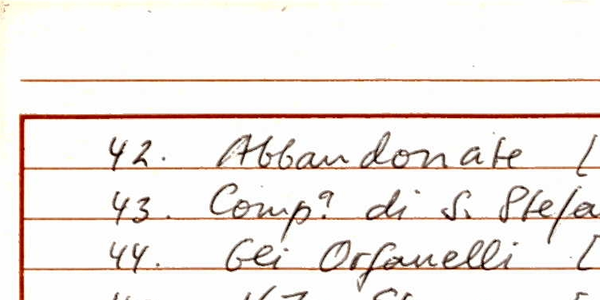 42. Abbandonate [
43. Comp? di S. Stefa
44. Gli Orfanelli [